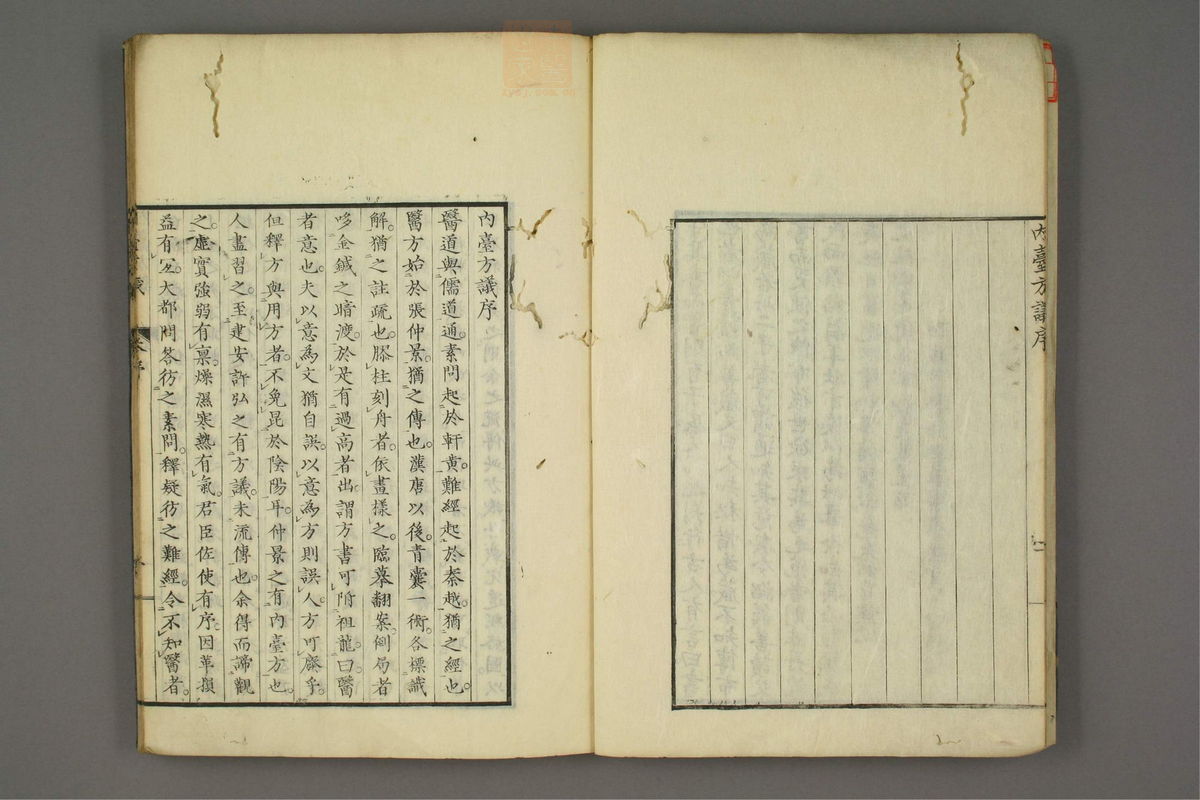 內臺方議序
內臺方議序
醫道與儒道通。素問起於軒黄。難經起於秦越。猶之經也。
醫方始於張仲景。猶之傳也。漢唐以後。青囊一術。各標識
解。猶之註疏也。膠柱刻舟者。依畫樣之。臨摹翻案。倒局者
哆金鍼之暗渡。於是有過高者出。謂方書可附祖龍。曰醫
者意也。夫以意為文猶自誤。以意為方則誤人。方可廢乎。
但釋方與用方者。不免昆於陰陽耳。仲景之有內臺方也。
人盡習之。至建安許弘之有方議。未流傳也。余得而諦觀
之。虛實強弱有稟。燥濕寒熱有氣。君臣佐使有序。因革損
益有定。大都問答彷之素問。釋疑彷之難經。令不知醫者。